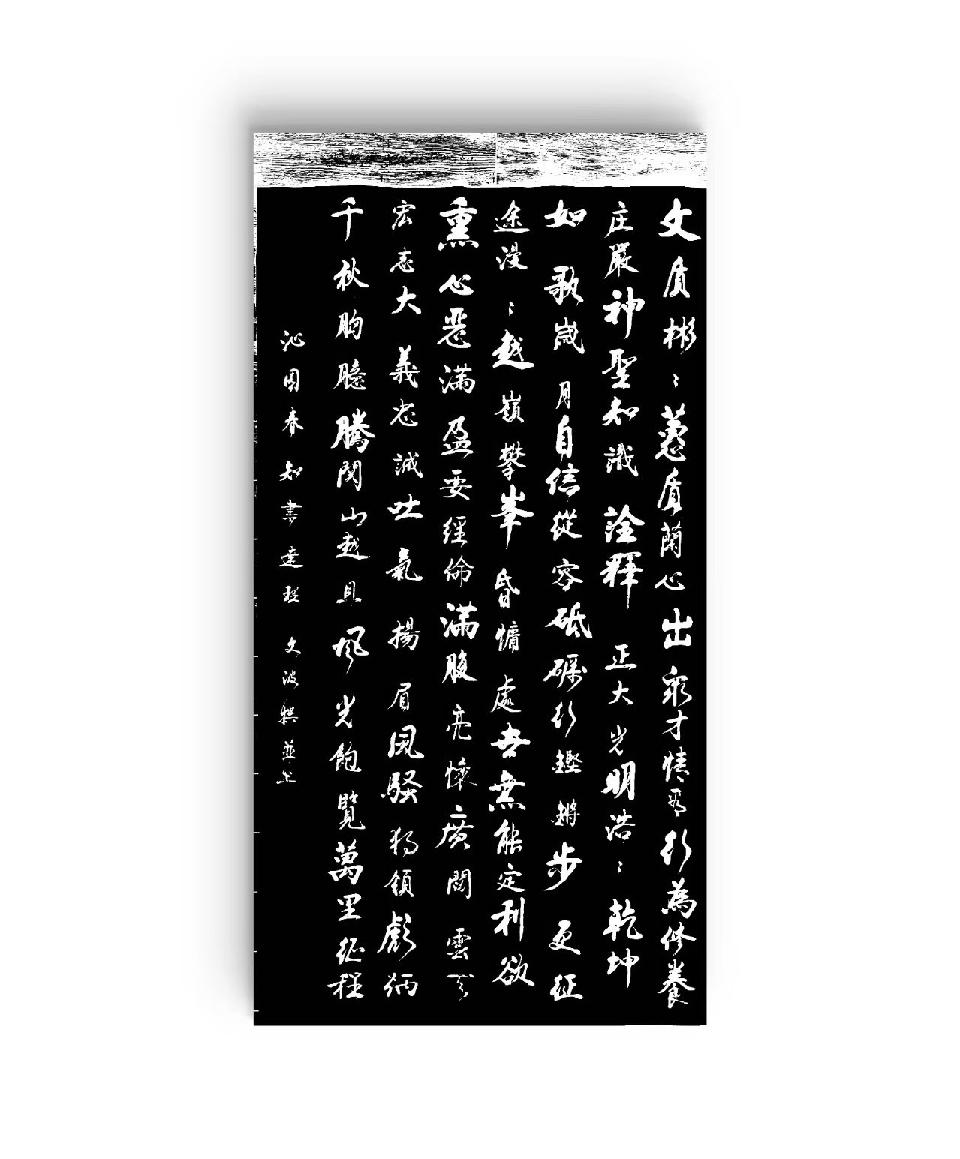 文质彬〻蕙质蘭心出眾才情万行為修養
庄嚴神聖知識詮釋正大光明浩〻乾坤
如歌歲月自信從容砥礪行鏗鏘步更征
途漫〻越嶺攀峯昏慵處去無能定利欲
熏心惡滿盈要經倫滿腹亮懷廣闊雲
宏志大義忠誠吐氣揚眉風騷獨領彪炳
千秋胸膽騰関山越且風光飽覧萬里征程
沁園春知書達理文波撰並書